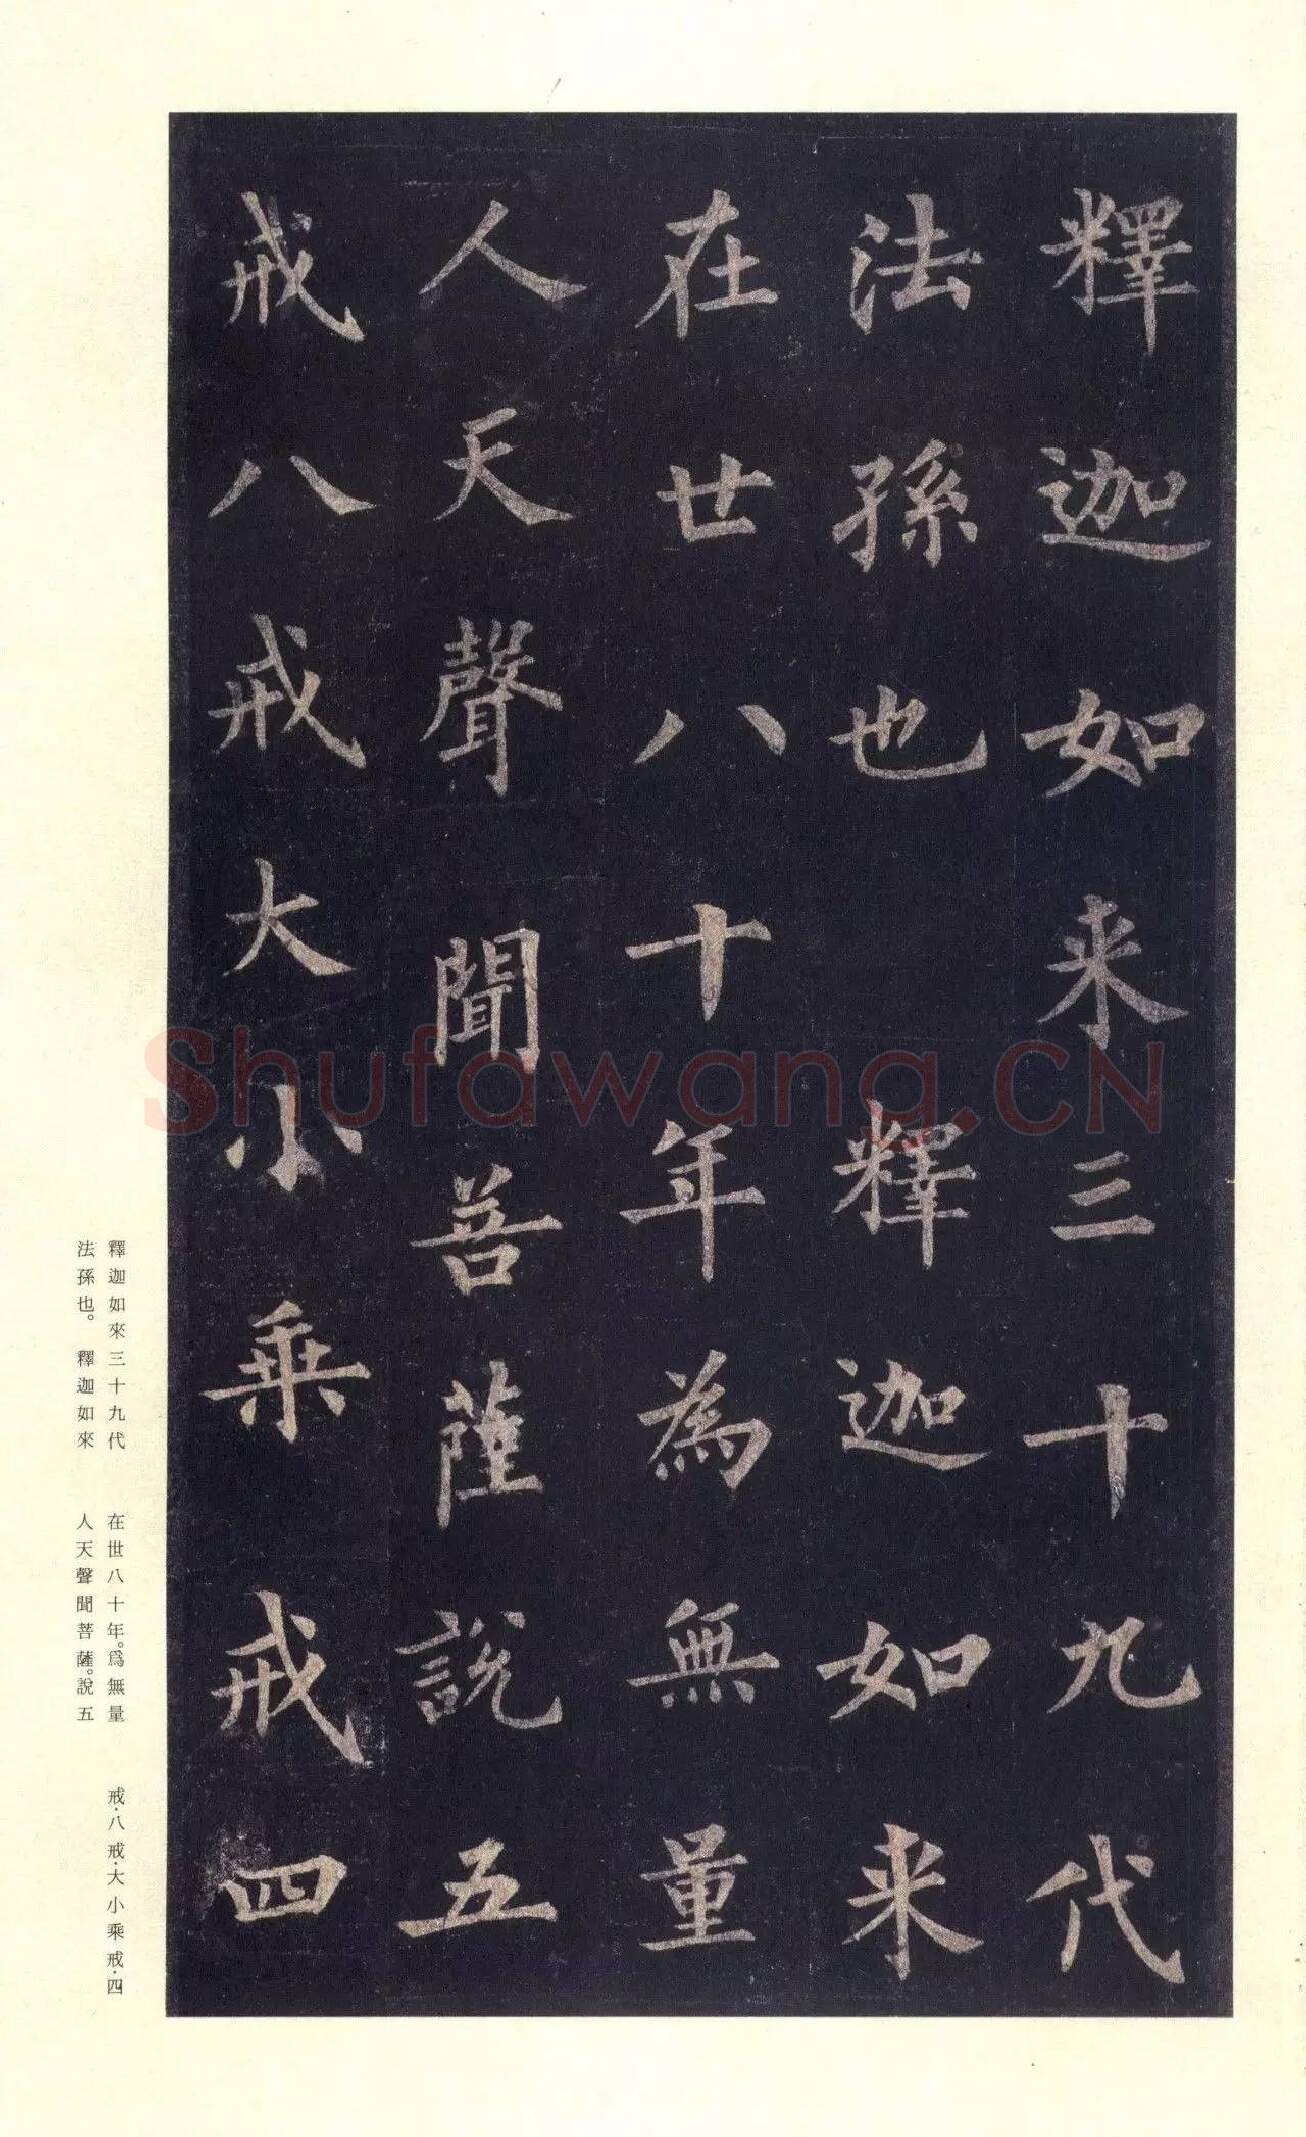 釋迦如来三十九代
法孫也　釋迦如来
在世八十年為無量
人天聲聞菩薩說五
戒八戒大小乘戒四
Shufawang.CN
釋迦如來三十九代
法孫也。釋迦如來
在世八十年。爲無量
人天聲聞菩薩。說五
戒·八戒·大小乘戒·四